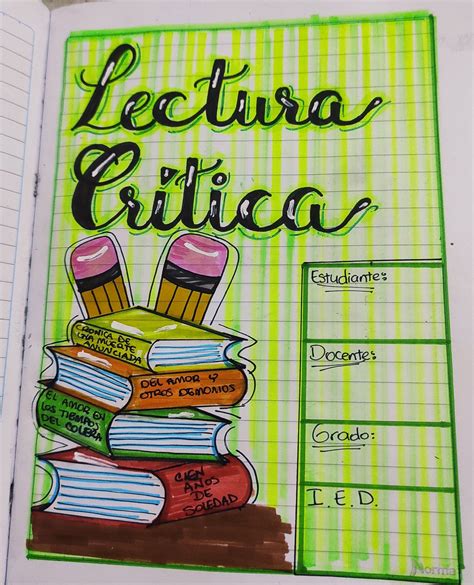 Lectura
Crítica
Estudiante:
Docente:
Grado:
I.E.D.
CRONICA DE
UNA MUERTE
ANUNCIADA
DEL AMOR Y
OTROS DEMONIOS
EL AMOR EN
LOS TIEMPOS
DEL COLERA
CIEN
AÑOS
DE
SOLEDAD
Norma